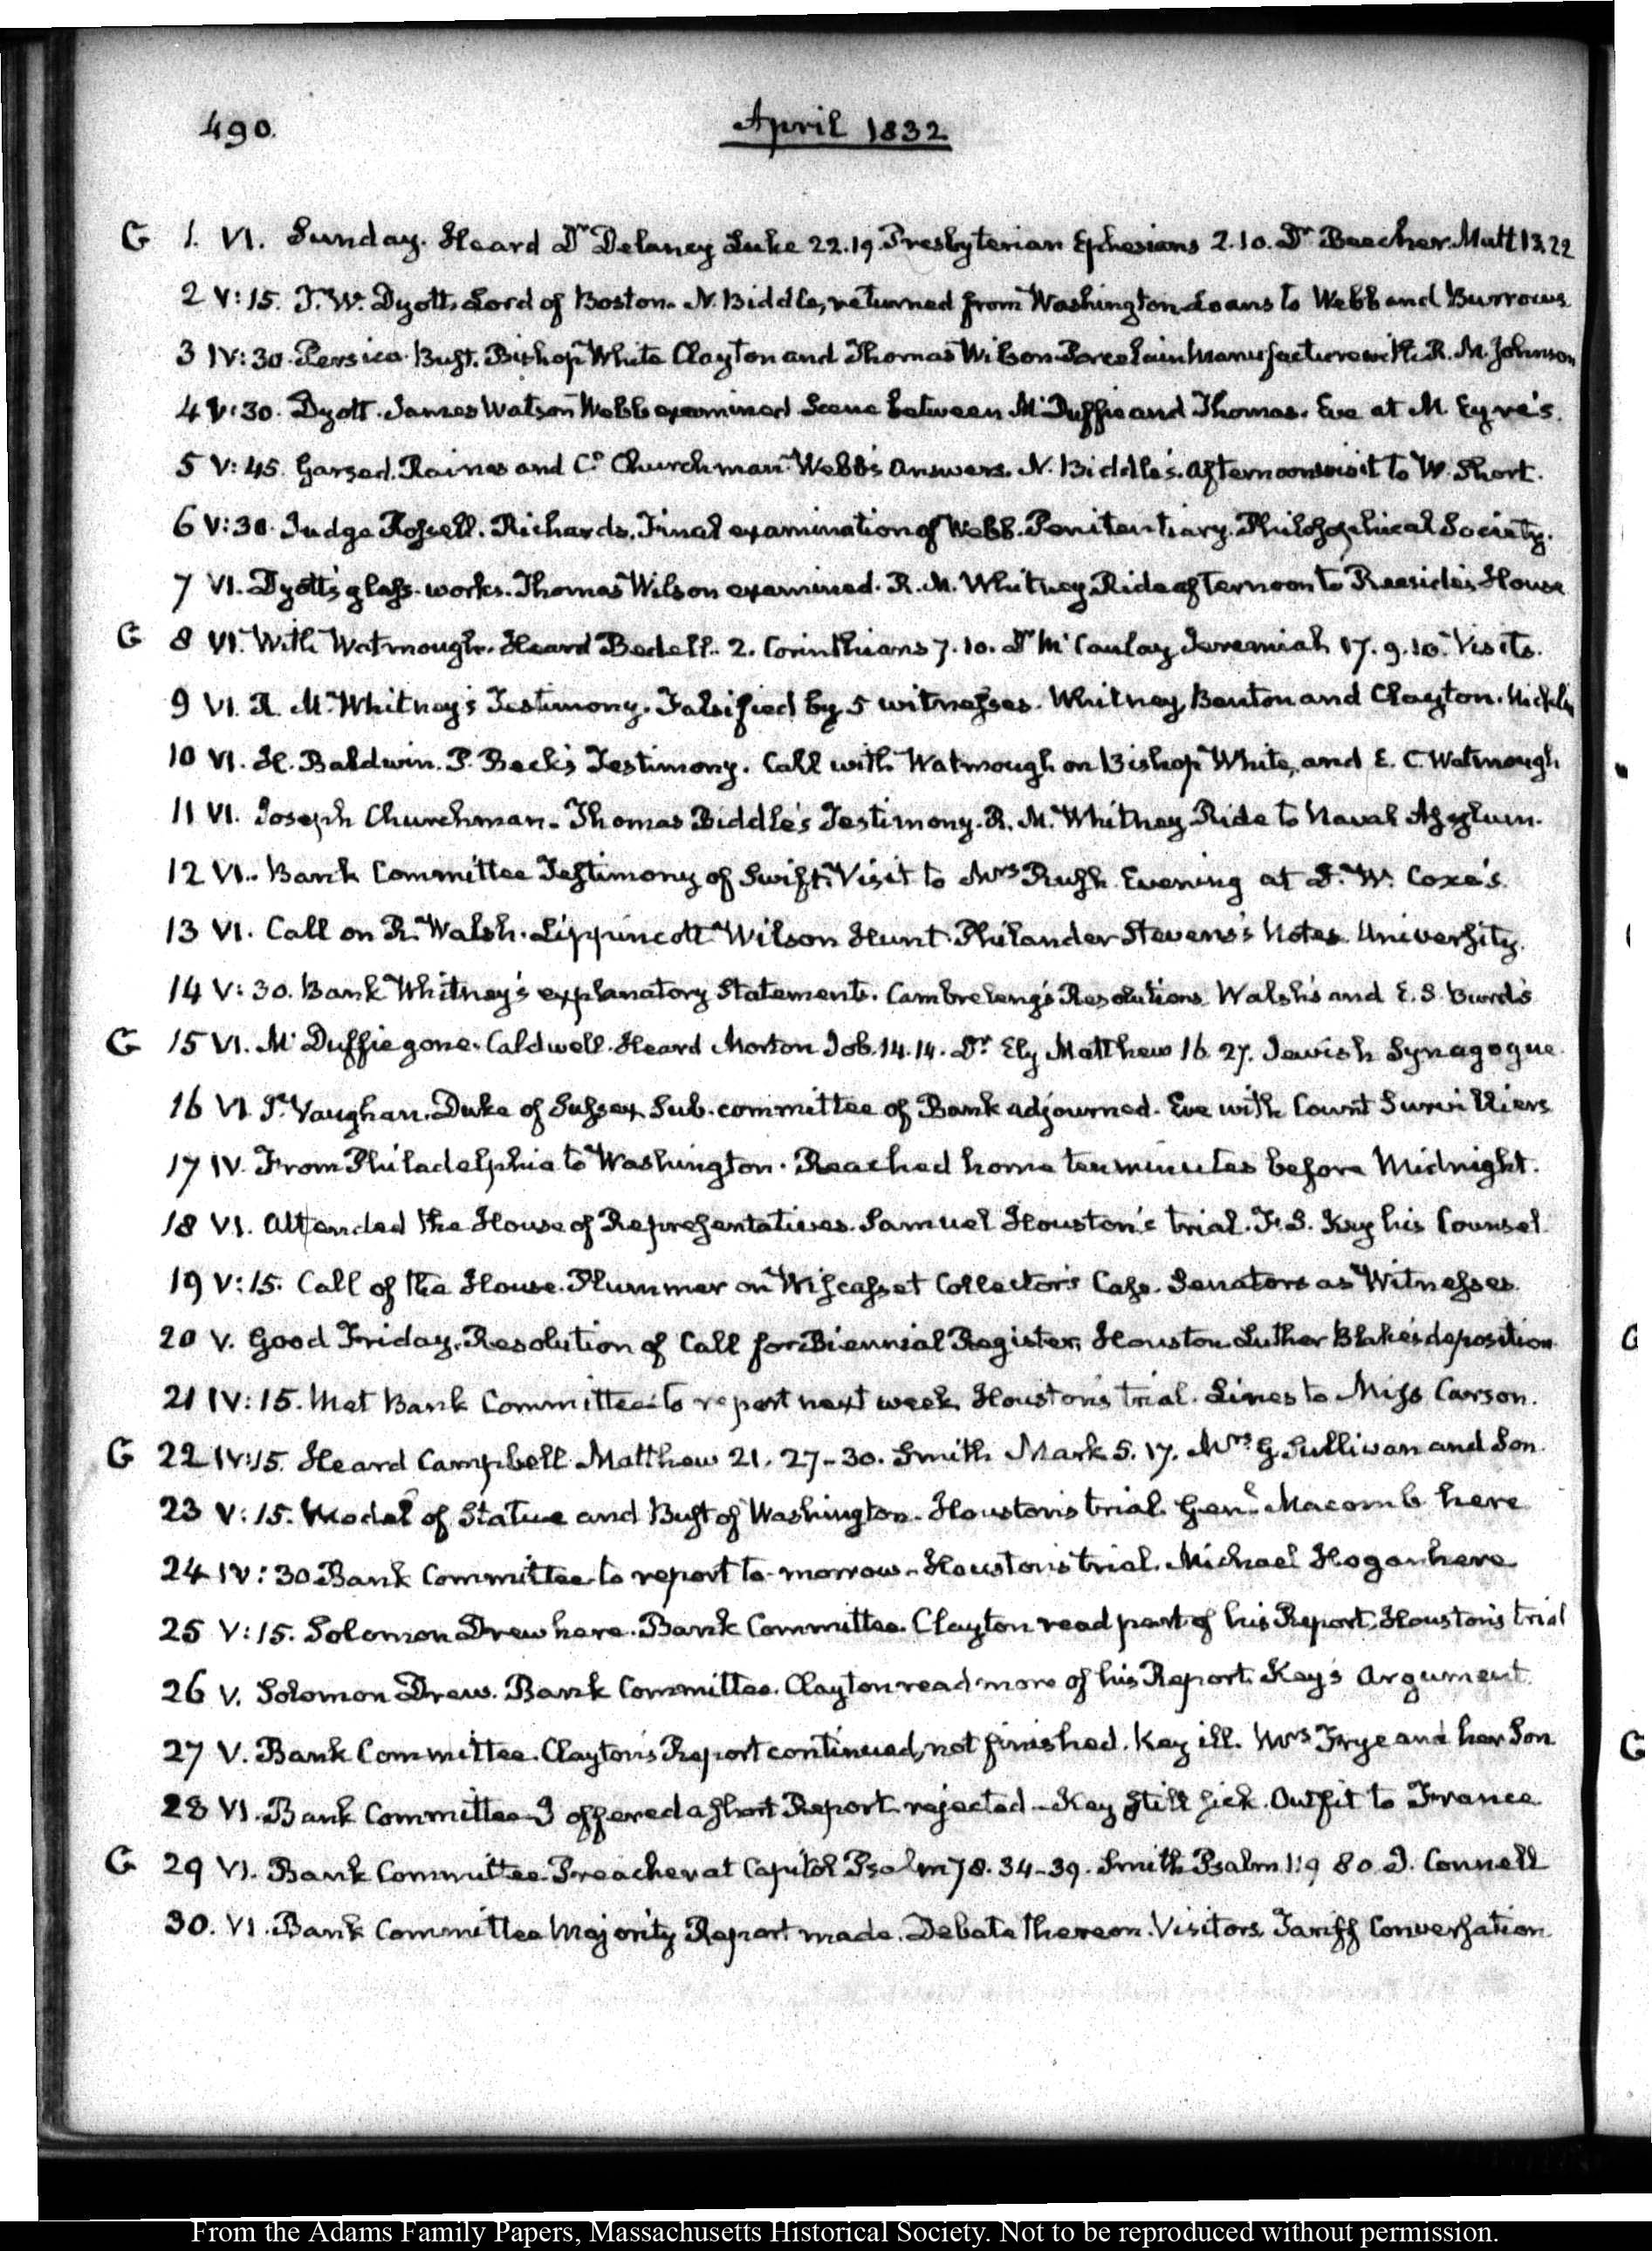 490.
April 1832
G 1. VI. Sunday. Heard Dr Delaney Luke 22.19. Presbyterian Ephesians 2.10. Dr Beecher. Matt 13.22
2 V:15. T. W. Dyott. Lord of Boston. N. Biddle, returned from Washington. Loans to Webb and Burrows
3 IV:30. Persico. Bust. Bishop White Clayton and Thomas Wilson. Porcelain Manufacture with R. M. Johnson
4 V:30. Dyott. James Watson Webb examined. Scene between Mc Duffie and Thomas. Eve at M. Eyre's.
5 V:45. Garsed. Raines and Co. Churchman. Webb's Answers. N. Biddle's. Afternoon visit to W. Short.
6 V:30. Judge Rossell. Richards. Final examination of Webb. Penitentiary. Philosophical Society.
7 VI. Dyott's glass-works. Thomas Wilson examined. R. M. Whitney. Ride afternoon to Reeside's House
G 8 VI. With Watmough. Heard Bedell. 2. Corinthians 7.10. Dr McCaulay Jeremiah 17.9.10. Visits.
9 VI. R. M. Whitney's Testimony. Falsified by 5 witnesses. Whitney, Benton and Clayton. Nicklin
10 VI. H. Baldwin. P. Beck's Testimony. Call with Watmough on Bishop White, and E. C. Watmough
11 VI. Joseph Churchman. Thomas Biddle's Testimony. R. M. Whitney. Ride to Naval Asylum.
12 VI. Bank Committee Testimony of Swift. Visit to Mrs Rush. Evening at D. W. Coxe's.
13 VI. Call on R. Walsh. Lippincott Wilson Hunt. Philander Stevens's Notes. University.
14 V:30. Bank Whitney's explanatory Statement. Cambreleng's Resolutions. Walsh's and E. S. Burd's
G 15 VI. Mc Duffie gone. Caldwell. Heard Morton Job. 14.14. Dr. Ely Matthew 16.27. Jewish Synagogue.
16 VI. J. Vaughan. Duke of Sussex. Sub-committee of Bank adjourned. Eve with Count Survilliers
17 IV. From Philadelphia to Washington. Reached home ten minutes before Midnight.
18 VI. Attended the House of Representatives. Samuel Houston's trial. F. S. Key his Counsel.
19 V:15. Call of the House. Plummer on Wiscasset Collector's Case. Senators as Witnesses.
20 V. Good Friday. Resolution of Call for Biennial Register. Houston. Luther Blake's deposition
21 IV:15. Met Bank Committee to report next week. Houston's trial. Lines to Miss Carson.
G 22 IV:15. Heard Campbell Matthew 21. 27-30. Smith Mark 5. 17. Mrs G. Sullivan and Son.
23 V:15. Model of Statue and Bust of Washington. Houston's trial. Genl. Macomb here
24 IV:30 Bank Committee to report to-morrow. Houston's trial. Michael Hogan here
25 V:15. Solomon Drew here. Bank Committee. Clayton read part of his Report. Houston's trial
26 V. Solomon Drew. Bank Committee. Clayton read more of his Report. Key's Argument.
27 V. Bank Committee. Clayton's Report continued, not finished. Key ill. Mrs Frye and her Son
28 VI. Bank Committee I offered a short Report rejected. Key still sick. Outfit to France
G 29 VI. Bank Committee. Preacher at Capitol Psalm 78. 34-39. Smith Psalm 119 80. J. Connell
30. VI. Bank Committee Majority Report made. Debate thereon. Visitors. Tariff Conversation
From the Adams Family Papers, Massachusetts Historical Society. Not to be reproduced without permission.